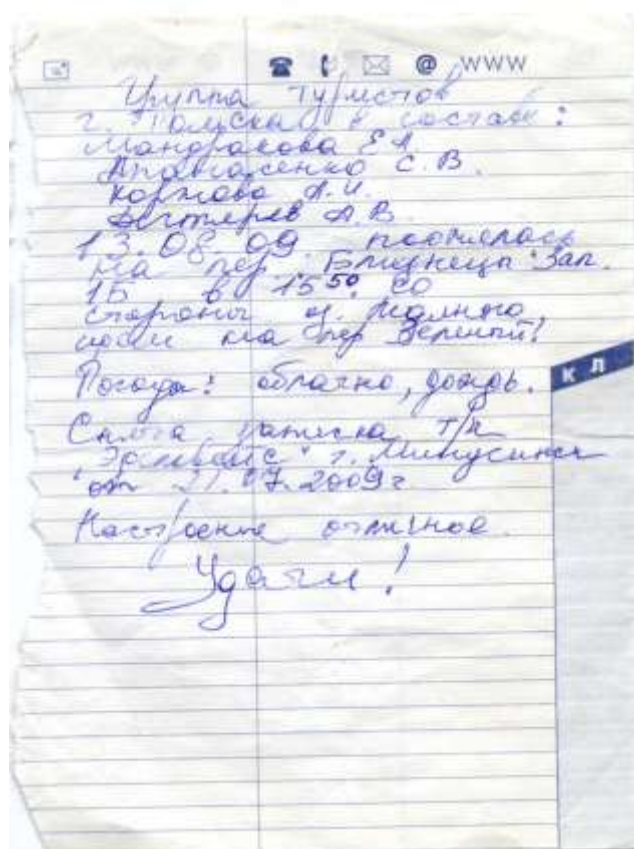 @ WWW
Группа туристов
г. Томска в составе:
Мандракова Е.А.
Апанасенко С.В.
Коржова А.И.
Дегтярев А.В.
13.08.09 поднялась
на пер. Близнецы Зап.
1Б в 15 50. со
стороны
идём на пер Зелёный!
Погода: облачно, дождь.
Снята записка т/к
"Эдельвейс" г. Минусинск
от 21.07.2009г
Настроение отличное.
Удачи!
К Л